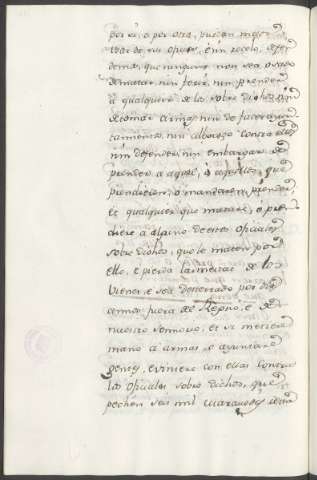 por si, o por otra, puedan mejor
usar de sus oficios, è sin recelo, defen
demos, que ninguno non sea osado
de matar, nin ferir, nin prender
à qualquiera de los sobre dichos, nin
de tomar armas, nin de facer ayun
tamiento, nin alborozo contra ellos
nin defender, nin embargar de
prender à aquel, ò aquellos, que
prendieren, o mandaren prender
è qualquier que matare, ò pren
diere à alguno de estos oficiales
sobre dichos, que lo maten por
ello, e pierda la meitad de los
Vienes, e sea desterrado por diez
annos fuera del Regno, e de
nuestro sennorio, et si metiere
mano à armas, e ayuntare
gentes, e viniere con ellas contra
los oficiales sobre dichos, que
pechen seis mil maravedis